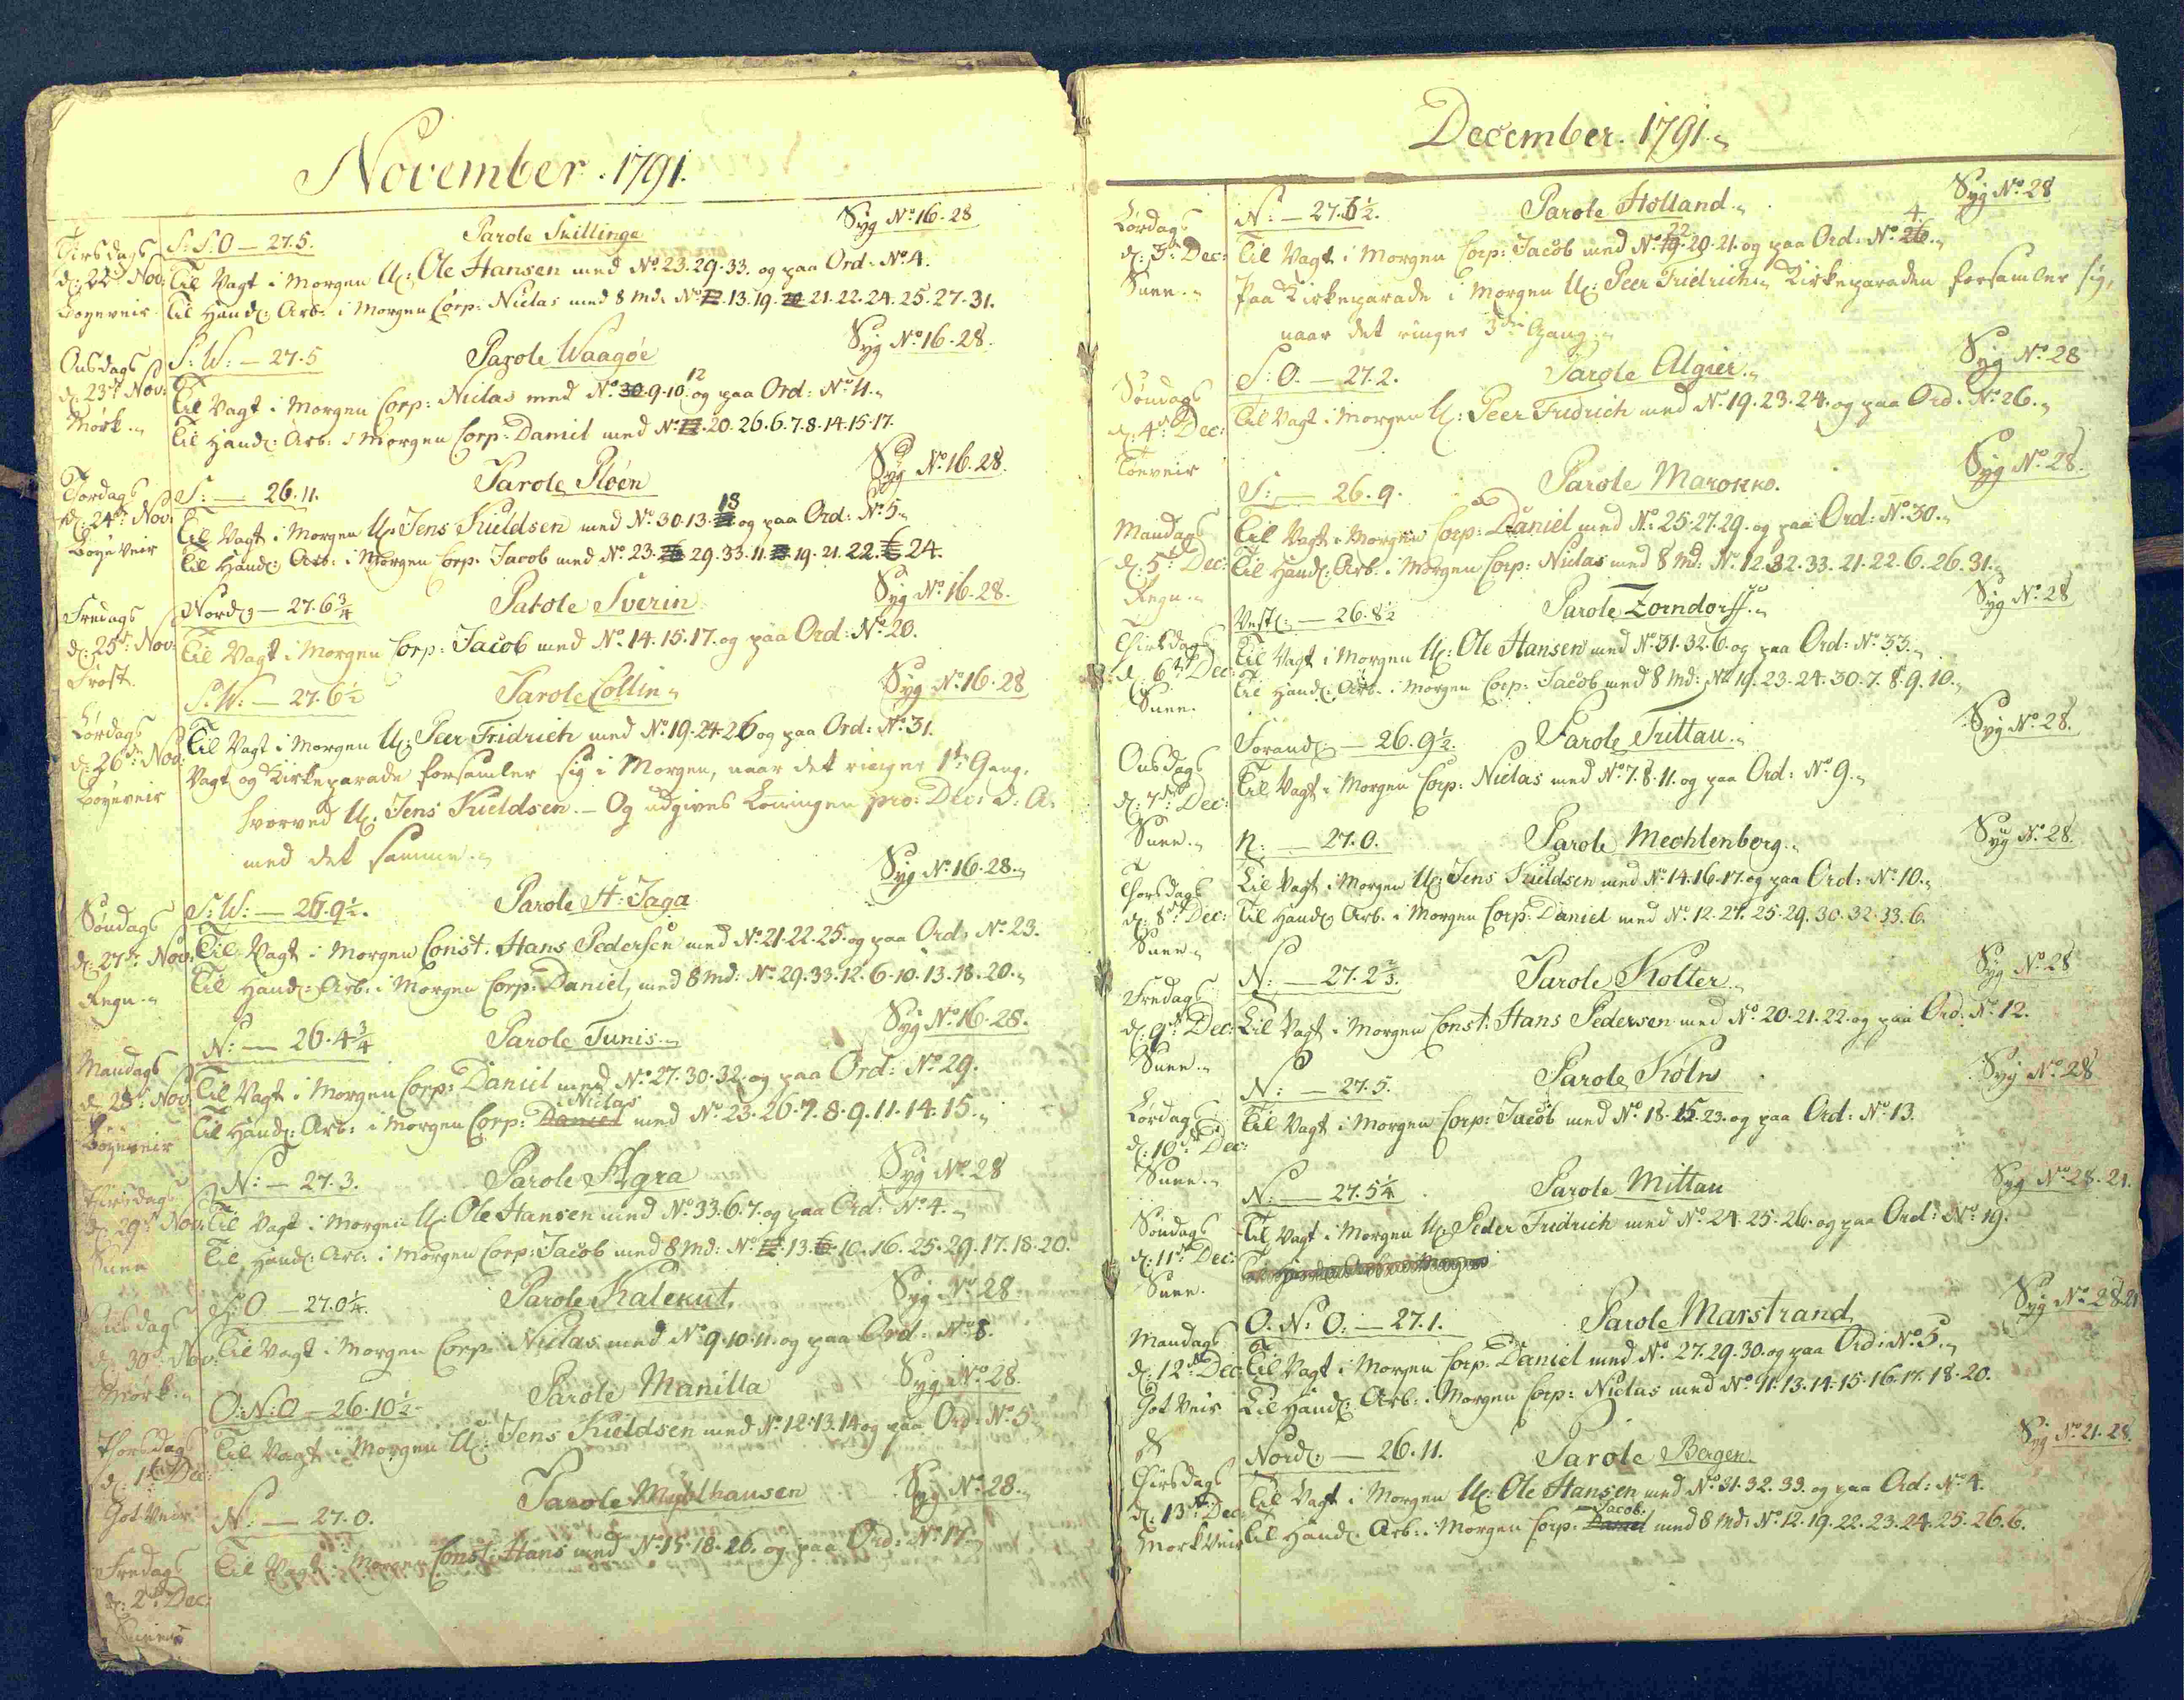 November. 1791.
S: S: O — 27.5. Parole Skillinge Syg No. 16.28
Tirsdags
d: 22de Nov:
Bøyeveir
Til Vagt i Morgen U: Ole Hansen med No. 23.29.33. og paa Ord: No. 4.
Til Handl: Arb: i Morgen Corp: Niclas med 8 Md. No. 13.19. 21.22.24.25.27.31.
S: W: — 27.5 Parole Waagøe Syg No. 16.28.
Onsdags
d: 23de Nov:
Mørk.
Til Vagt i Morgen Corp: Niclas med No. 30.9.10. 12 og paa Ord: No. 11.
Til Handl: Arb: i Morgen Corp: Daniel med No. 20.26.6.7.8.14.15.17.
S: — 26.11. Parole Pløen Syg No. 16.28.
Tordags
d: 24de Nov:
Bøye Veir
Til Vagt i Morgen U: Jens Kieldsen med No. 30.13. 18 og paa Ord: No. 5.
Til Handl: Arb: i Morgen Corp. Jacob med No. 23. 29.33.11. 19.21.22. 24.
Nordl: — 27.6¾ Parole Sverin Syg No. 16.28.
Fredags
d: 25de Nov:
Frost.
Til Vagt i Morgen Corp: Jacob med No. 14.15.17. og paa Ord: No. 20.
S: W: — 27.6½ Parole Collin Syg No. 16.28
Lørdags
d: 26de Nov:
Bøyeveir
Til Vagt i Morgen U: Peer Fridrich med No. 19.24.26 og paa Ord: No. 31.
Vagt og Kirkeparade forsamler sig i Morgen, naar det ringer 1te Gang.
hvorved U: Jens Kieldsen. — Og udgives Løningen pro: Dec: d: A:
med det samme.
S: W: — 26.9½. Parole St: Jaga Syg No. 16.28.
Søndags
d: 27de Nov:
Regn.
Til Vagt i Morgen Const. Hans Pedersen med No. 21.22.25. og paa Ord: No. 23.
Til Handl: Arb: i Morgen Corp: Daniel, med 8 Md: No. 29.33.12.6.10.13.18.20.
N: — 26.4¾ Parole Tunis. Syg No. 16.28.
Mandags
d: 28de Nov:
Bøyeveir
Til Vagt i Morgen Corp: Daniel med No. 27.30.32. og paa Ord: No. 29.
Niclas
Til Handl: Arb: i Morgen Corp: Daniel med No. 23.26.7.8.9.11.14.15.
N: — 27.3. Parole Agra Syg No. 28
Thirsdags
d: 29de Nov:
Snee
Til Vagt i Morgen U: Ole Hansen med No. 33.6.7. og paa Ord: No. 4.
Til Handl: Arb: i Morgen Corp: Jacob med 8 Md: No. 13. 10.16.25.29.17.18.20.
S: O — 27.0¼. Parole Kalekut. Syg No. 28.
Onsdags
d: 30de Nov:
Mørk.
Til Vagt i Morgen Corp. Niclas med No. 9.10.11. og paa Ord: No. 8.
O: N: O — 26.10½ Parole Manilla Syg No. 28.
Thorsdags
d: 1te Dec:
Got Veir
Til Vagt i Morgen U: Jens Kieldsen med No. 12.13.14 og paa Ord: No. 5
N: — 27.0. Parole Mühlhausen Syg No. 28.
Fredags
d: 2de Dec:
Til Vagt i Morgen Const: Hans med No. 15.18.26. og paa Ord: No. 17.
December. 1791.
N: — 27.6½. Parole Holland. Syg No. 28
Lørdags
d: 3de Dec:
Snee.
Til Vagt i Morgen Corp: Jacob med No. 22 19.20.21. og paa Ord: No. 4. 26.
Paa Kirkeparade i Morgen U: Peer Fridrich. Kirkeparaden forsamler sig,
naar det ringer 3die Gang.
S: O. — 27.2. Parole Algier. Syg No. 28
Søndags
d: 4de Dec:
Tøeveir
Til Vagt i Morgen U: Peer Fridrich med No. 19.23.24. og paa Ord. No. 26.
S: — 26.9. Parole Marokko. Syg No. 28.
Mandags
d: 5te Dec:
Regn.
Til Vagt i Morgen Corp: Daniel med No. 25.27.29. og paa Ord: No. 30.
Til Handl: Arb: i Morgen Corp: Niclas med 8 Md: No. 12.32.33.21.22.6.26.31.
Vestl: — 26.8½ Parole Zorndorff. Syg No. 28
Thirsdags
d: 6te Dec:
Snee.
Til Vagt i Morgen U: Ole Hansen med No. 31.32.6. og paa Ord: No. 33.
Til Handl: Arb: i Morgen Corp: Jacob med 8 Md: No. 19.23.24.30.7.8.9.10.
Forandl: — 26.9½. Parole Trittau. Syg No. 28.
Onsdags
d: 7de Dec:
Snee.
Til Vagt i Morgen Corp: Niclas med No. 7.8.11. og paa Ord: No. 9.
N: — 27.0. Parole Mechlenberg. Syg No. 28.
Thorsdags
d: 8de Dec:
Snee
Til Vagt i Morgen U: Jens Kieldsen med No. 14.16.17. og paa Ord: No. 10.
Til Handl: Arb: i Morgen Corp: Daniel med No. 12.27.25.29.30.32.33.6.
N: — 27.2⅔. Parole Kolter. Syg No. 28
Fredags
d: 9de Dec:
Snee.
Til Vagt i Morgen Const: Hans Pedersen med No. 20.21.22. og paa Ord. No. 12.
N: — 27.5. Parole Køln Syg No. 28
Lørdags
d: 10de Dec:
Snee.
Til Vagt i Morgen Corp: Jacob med No. 18.15.23. og paa Ord: No. 13.
N: — 27.5¼ Parole Mittau Syg No. 28.21.
Søndags
d: 11te Dec:
Snee.
Til Vagt i Morgen U: Peder Fridrich med No. 24.25.26. og paa Ord: No. 19.
O. N: O: — 27.1. Parole Marstrand Syg No. 28.21
Mandags
d: 12te Dec:
Got Veir
Til Vagt i Morgen Corp. Daniel med No. 27.29.30. og paa Ord: No. 5.
Til Handl: Arb: i Morgen Corp: Niclas med No. 11.13.14.15.16.17.18.20.
Nordl: — 26.11. Parole Bergen. Syg No. 21.28.
Thirsdags
d: 13de Dec:
Mørk Veir
Til Vagt i Morgen U: Ole Hansen med No. 31.32.33. og paa Ord: No. 4.
Jacob
Til Handl: Arb: i Morgen Corp: Daniel med 8 Md: No. 12.19.22.23.24.25.26.6.